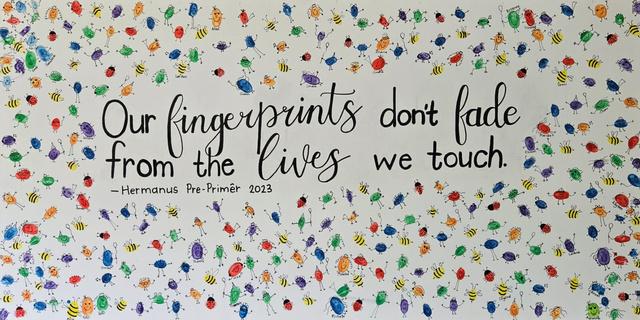 Our fingerprints don't fade
from the lives we touch.
— Hermanus Pre-Primêr 2023